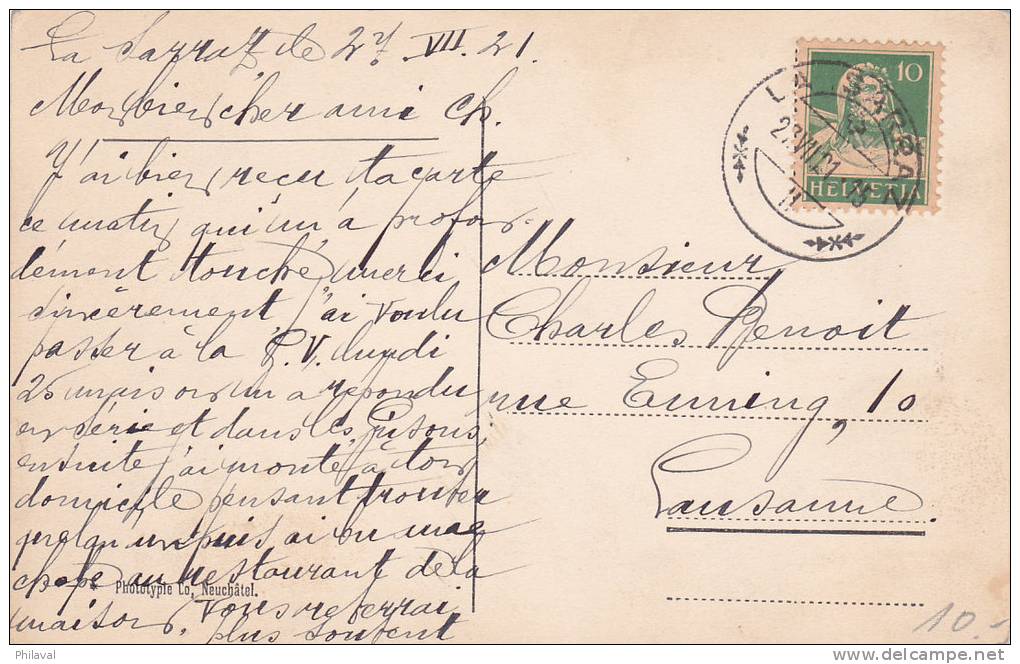 La Sarraz le 27 VII 21.
Mon bien cher ami Ch.
J'ai bien reçu ta carte
ce matin qui m'a profon-
dément touché, merci
sincèrement j'ai voulu
passer à la P.V. lundi
25 mais on m'a répondu
en série et dans les
ensuite j'ai monté à ton
domicile pensant trouver
quelqu'un puis ai bu une
chope au restaurant de la
maison, vous referrai
plus souvent
Phototypie Co, Neuchâtel.
10
HELVETIA
LA SARRAZ
27.VII.21.-15
II
Monsieur
Charles Benoit
rue Euning, 10
Lausanne.
10.-
Philaval
delcampe.net